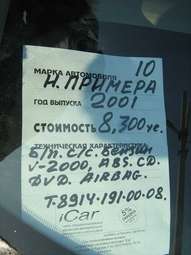 10
МАРКА АВТОМОБИЛЯ
Н. ПРИМЕРА
ГОД ВЫПУСКА 2001
СТОИМОСТЬ 8,300 у.е.
ТЕХНИЧЕСКАЯ ХАРАКТЕРИСТИКА
Б/П. С/С. БЕНЗИН
V-2000, ABS. CD.
DVD. AIRBAG.
Т-8914-191-00-08.
iCar